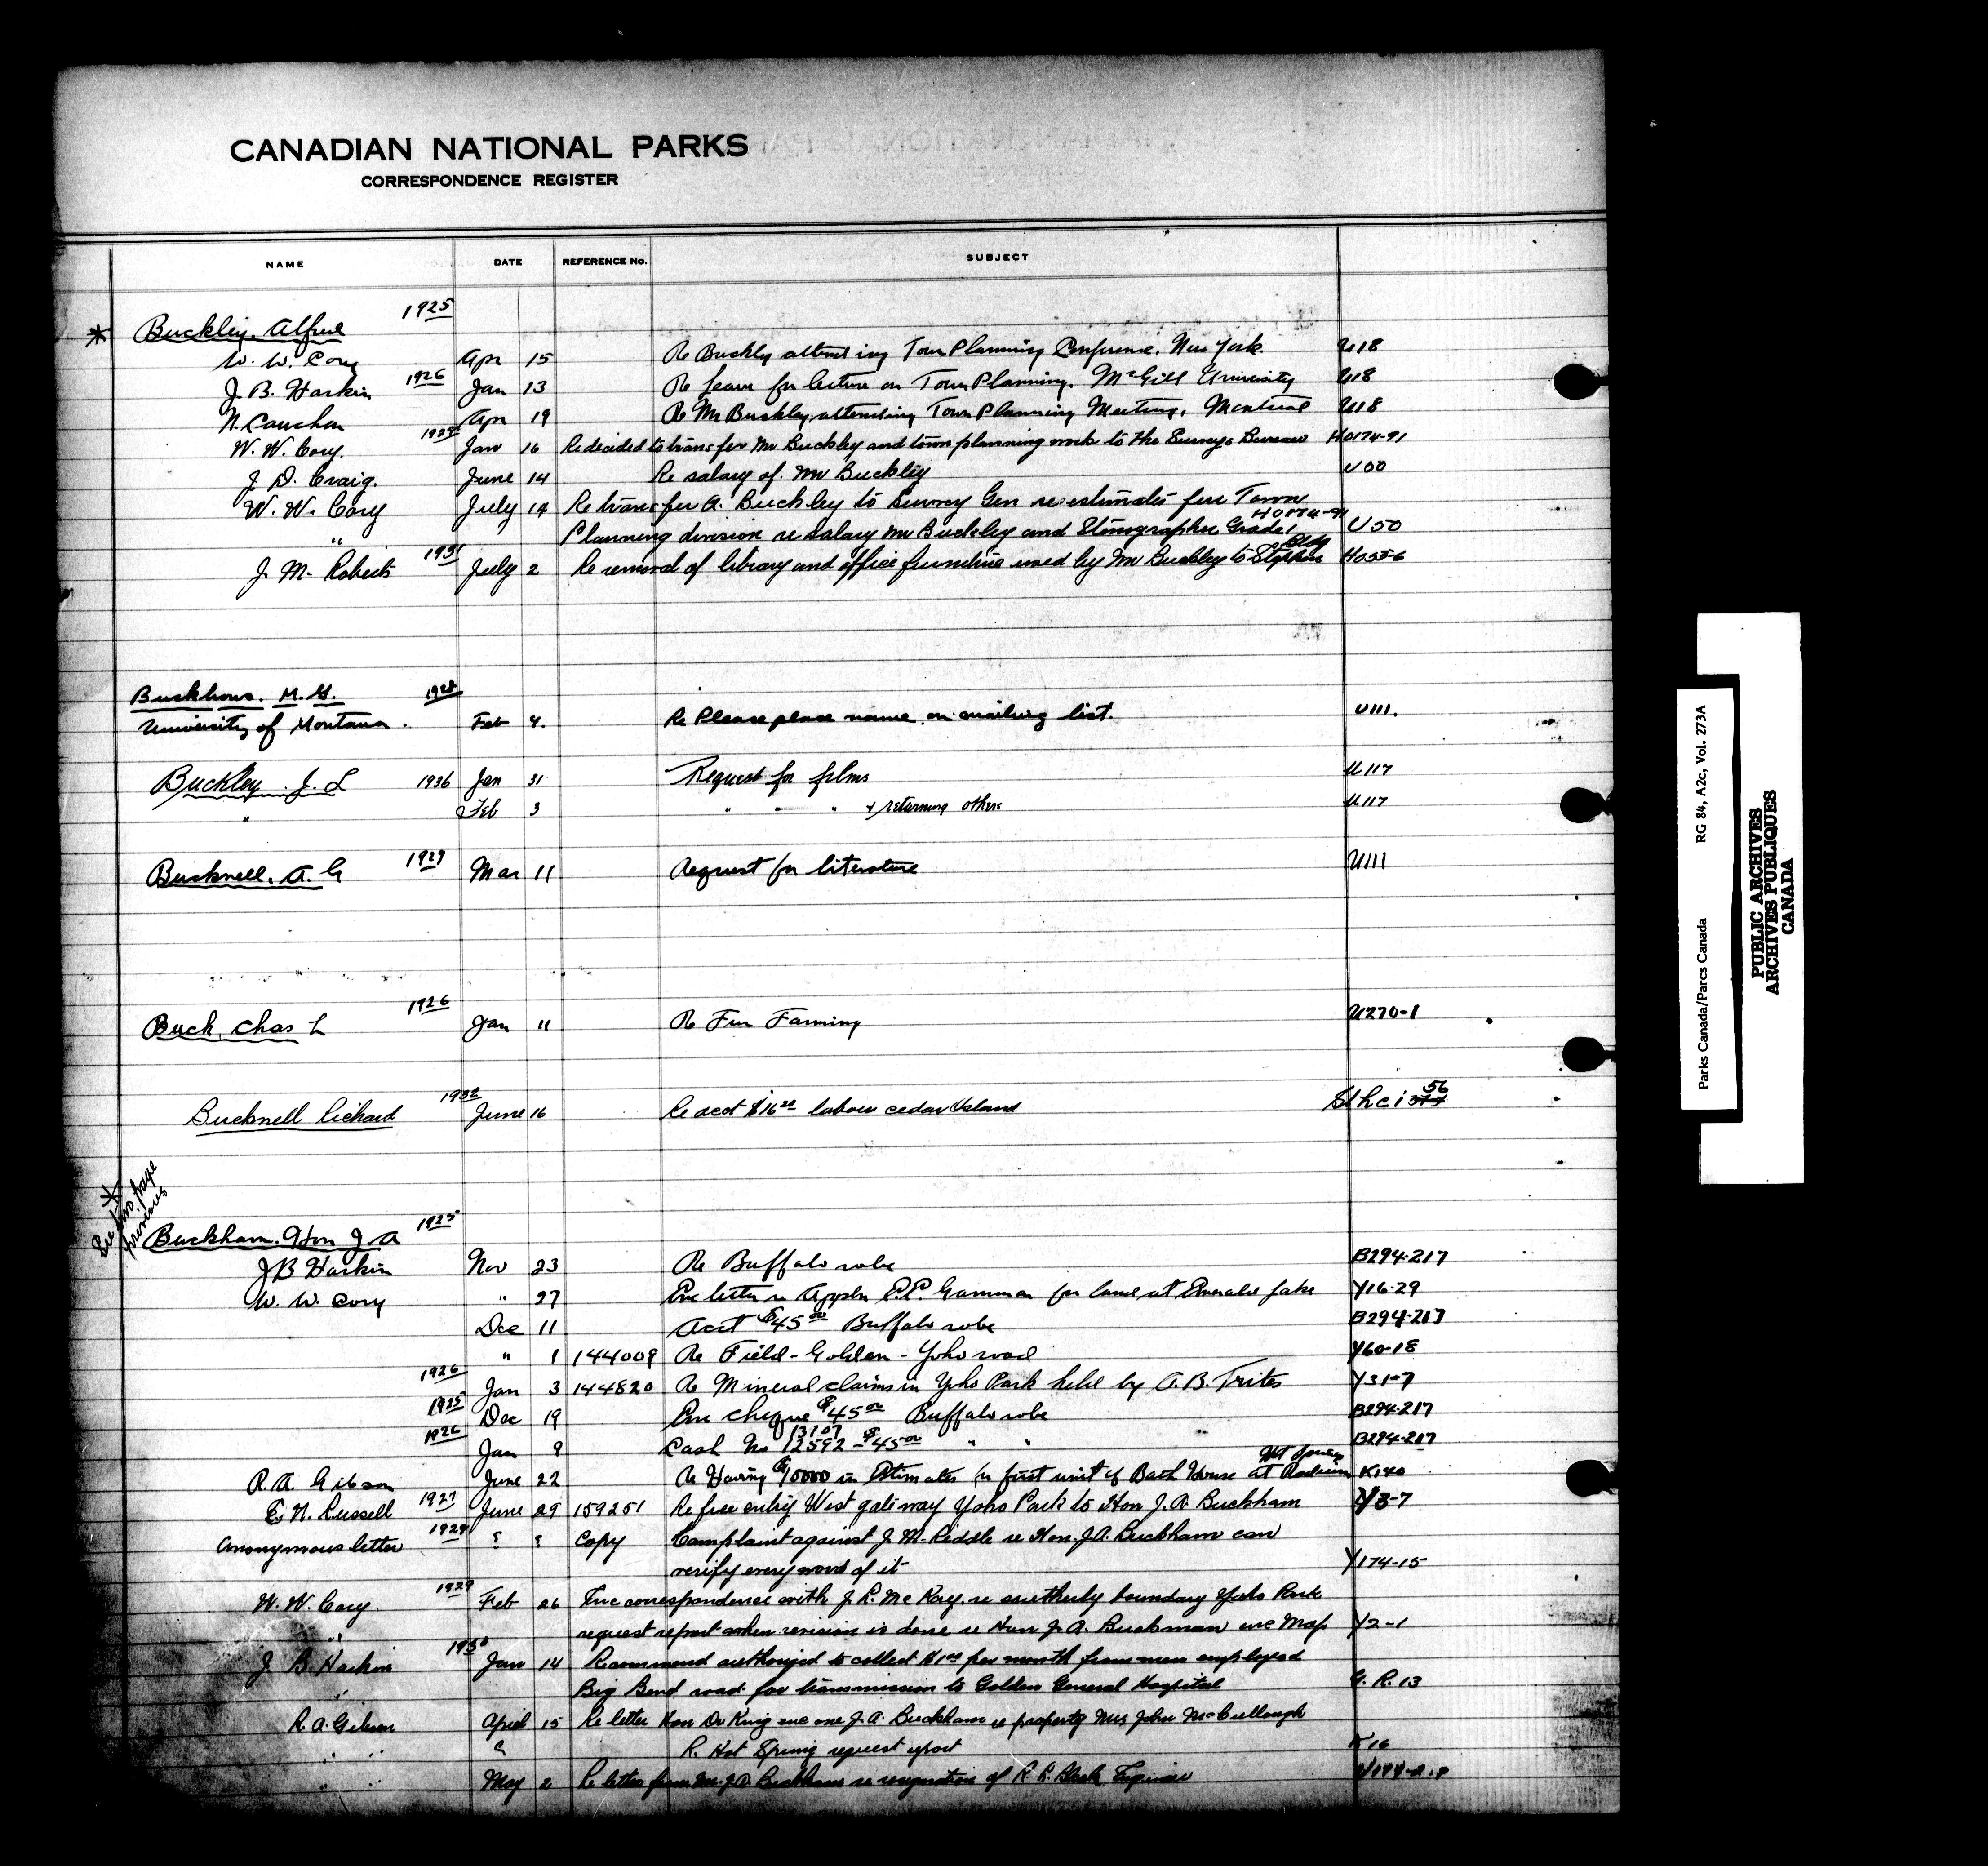 CANADIAN NATIONAL PARKS
CORRESPONDENCE REGISTER
NAME DATE REFERENCE No. SUBJECT
1925
* Buckley, Alfred
W. W. Cory Apr 15 Re Buckley attending Town Planning Conference, New York. U18
J. B. Harkin 1926 Jan 13 Re leave for lecture on Town Planning. McGill University U18
N. Cauchon Apr 19 Re Mr Buckley attending Town Planning Meeting, Montreal U18
W. W. Cory. Jan 16 Re decided to transfer Mr Buckley and town planning work to the Surveys Bureau H0174-91
J. D. Craig. June 14 Re salary of Mr Buckley U00
W. W. Cory July 14 Re transfer A. Buckley to Survey Gen re estimates for Town H0174-91
" Planning division re salary Mr Buckley and Stenographer Grade 1 U50
J. M. Roberts 1931 July 2 Re removal of library and office furniture used by Mr Buckley to Stephen Bldg H055-6
M. G. 1928
University of Montana. Feb 4. Re Please place name on mailing list. U111.
Buckley J. L 1936 Jan 31 Request for films U117
" Feb 3 " " " & returning others U117
Bucknell, A. G 1929 Mar 11 Request for literature U111
1926
Buck, Chas L Jan 11 Re Fur Farming U270-1
1932
Bucknell Richard June 16 Re acct $16 labour cedar Island St h c i 56
* See two page previous
Buckham, Hon J. A 1925
J B Harkin Nov 23 Re Buffalo robe B294-217
W. W. Cory " 27 Enc letter re Appln Gamman for land at Emerald Lake Y16-29
Dec 11 Acct $45.00 Buffalo robe B294-217
" 1 144009 Re Field-Golden-Yoho road Y60-18
1926 Jan 3 144820 Re Mineral claims in Yoho Park held by A. B. Trites Y31-7
1925 Dec 19 Enc cheque $45.00 Buffalo robe B294-217
1926 Jan 9 Cash No 13107 12592 - $45.00 " " B294-217
R. A. Gibson June 22 Re Having $10000 in Estimates for first unit of Bath House at Radium Hot Springs K140
E. N. Russell 1927 June 29 159251 Re free entry West gateway Yoho Park to Hon J. A. Buckham Y3-7
Anonymous letter 1929 ? ? Copy Complaint against J. M. Riddle re Hon. J. A. Buckham can
verify every word of it Y174-15
W. W. Cory. 1929 Feb 26 Enc correspondence with J. R. McKay re southerly boundary Yoho Park
" request report when revision is done re Hon J. A. Buckman enc Map Y2-1
J. B. Harkin 1930 Jan 14 Recommend authorized to collect $1.00 per month from men employed
" Big Bend road for transmission to Golden General Hospital G. R. 13
R. A. Gibson April 15 Re letter Hon Dr King enc one J. A. Buckham re property Mrs John McCullough
" " R. Hot Spring request report K16
" " May 2 Re letter from Mr. J. A. Buckham re resignation of R. R.
Parks Canada/Parcs Canada RG 84, A2c, Vol. 273A
PUBLIC ARCHIVES
ARCHIVES PUBLIQUES
CANADA